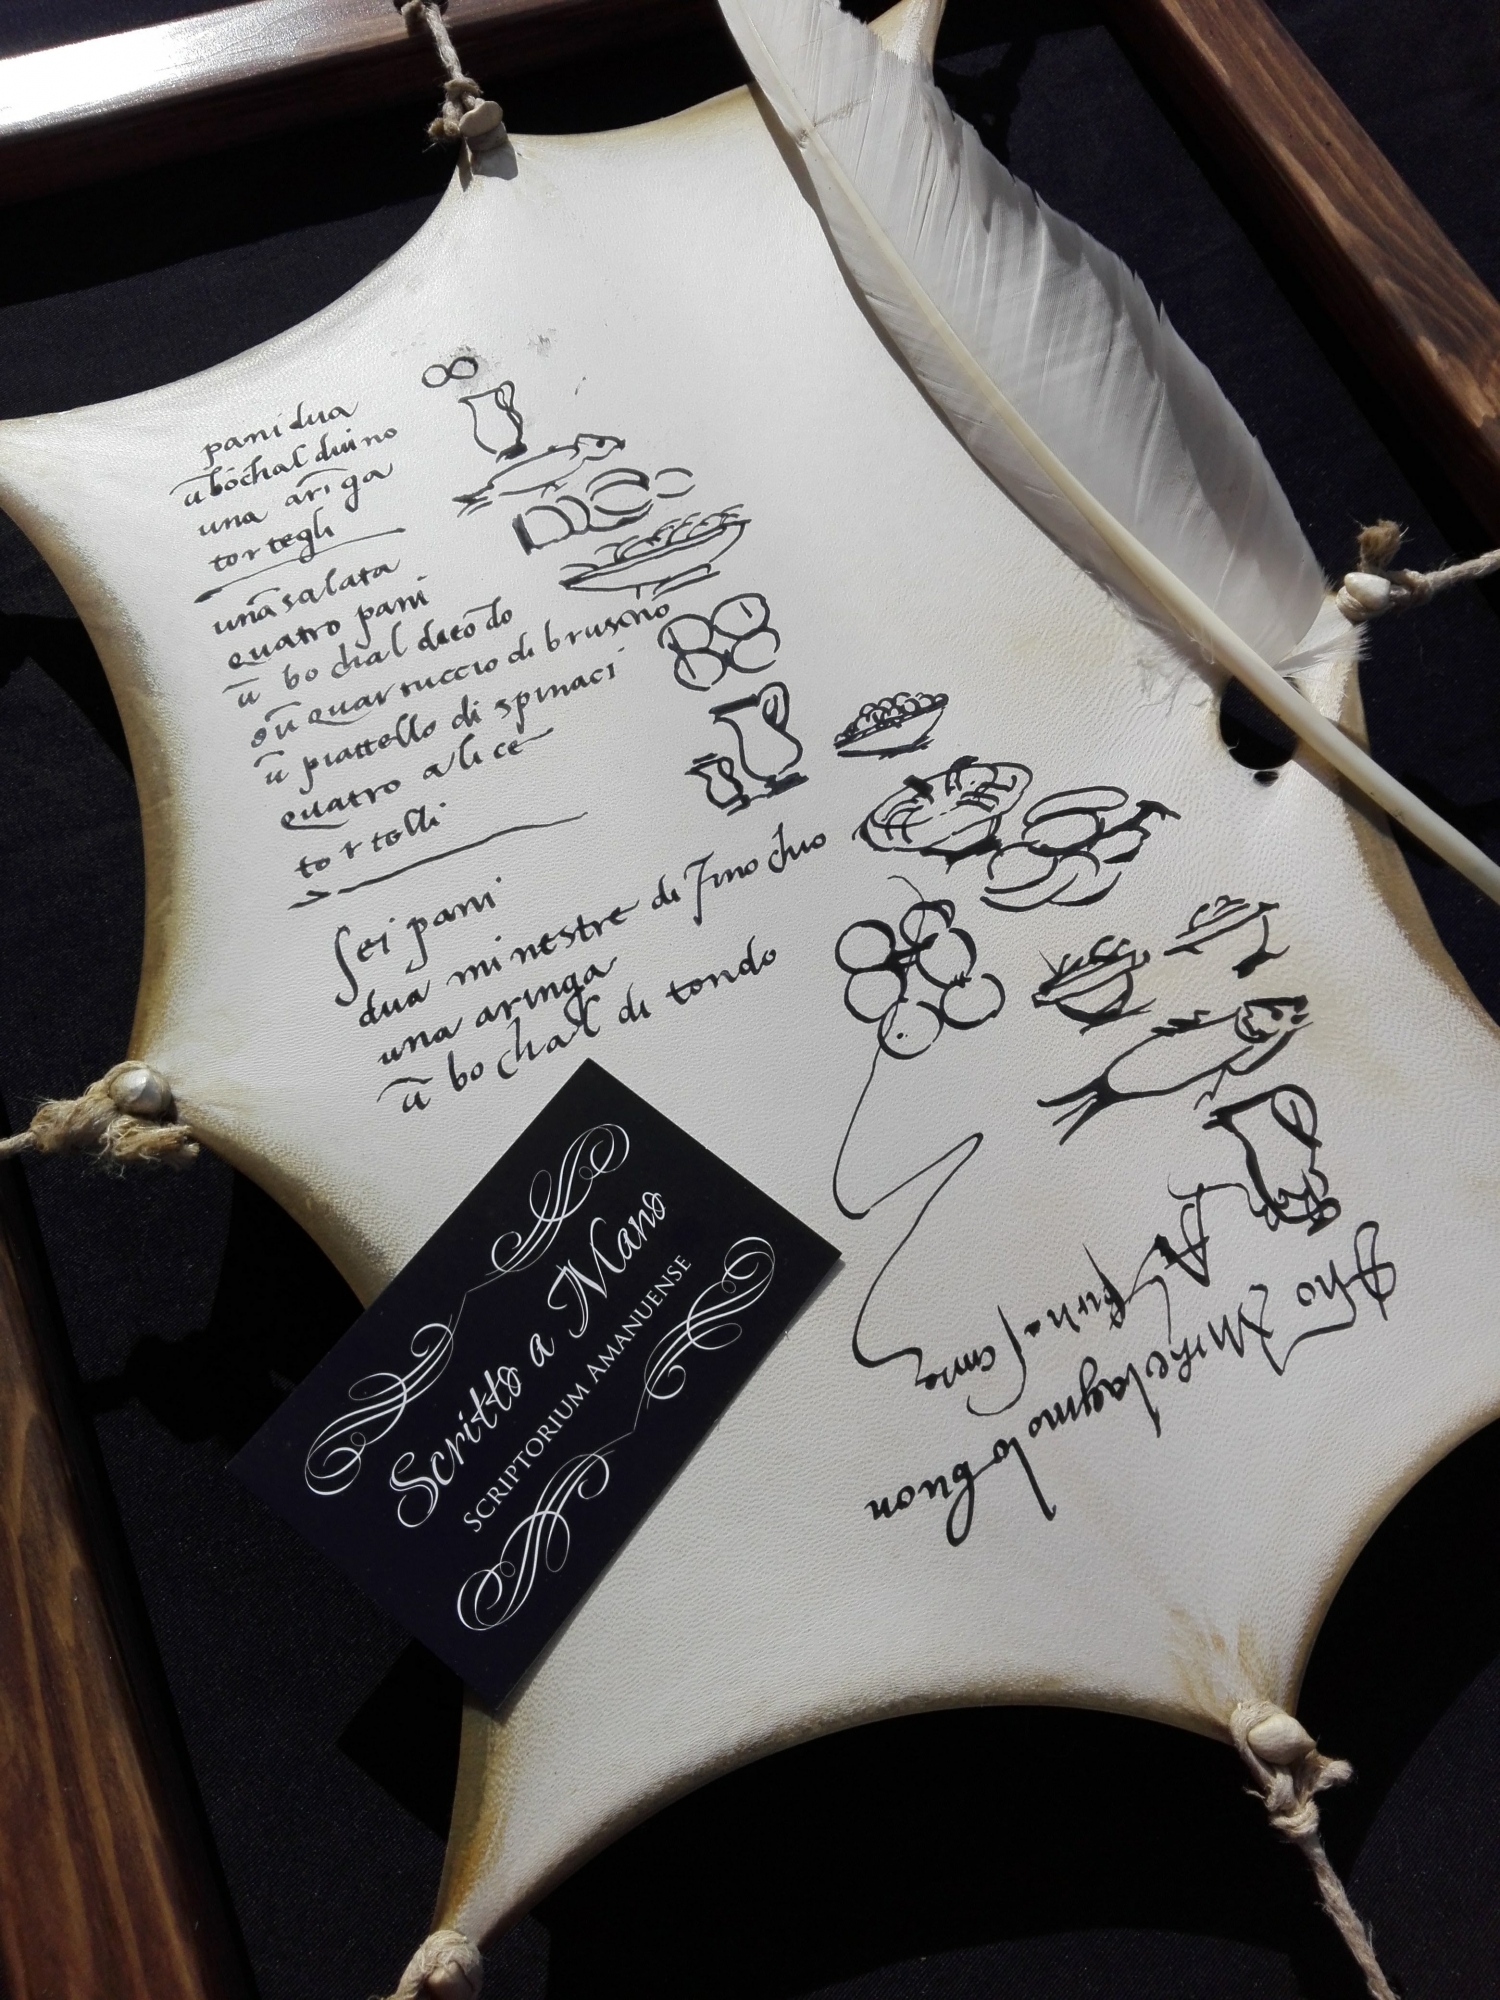 pani dua
ū bochal di vino
una aringa
tortegli
una salata
quatro pani
ū bochal di tōdo
e ū quartuccio di bruscino
ū piattello di spinaci
quatro alice
tortelli
sei pani
dua minestre di finochio
una aringa
ū bochal di tondo
Scritto a Mano
SCRIPTORIUM AMANUENSE
lo buon